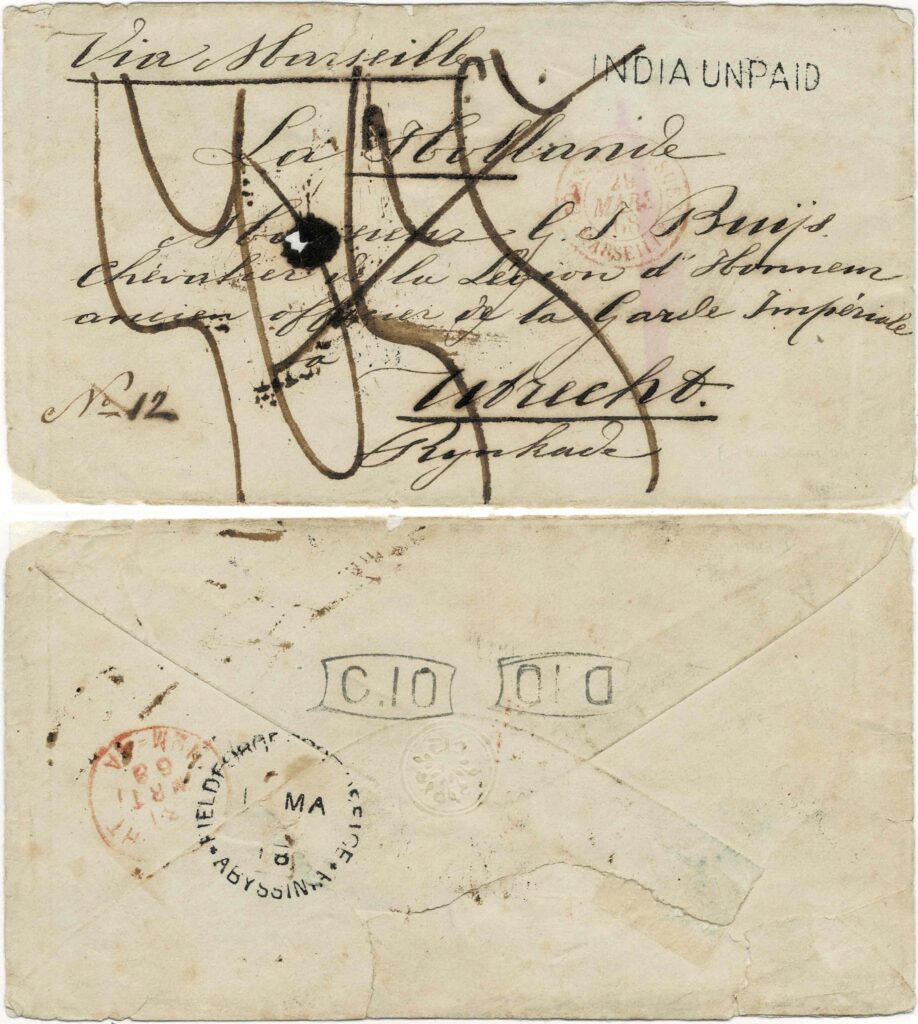 Via Marseille
INDIA UNPAID
La Hollande
29
MARS
68
MARSEILLE
Monsieur G J Buijs.
Chevalier de la Légion d'Honneur
ancien officier de la Garde Impériale
à
Utrecht.
No. 12
Rynkade
C.10
D 10
FIELD FORCE POST OFFICE
1 MA
ABYSSINIA